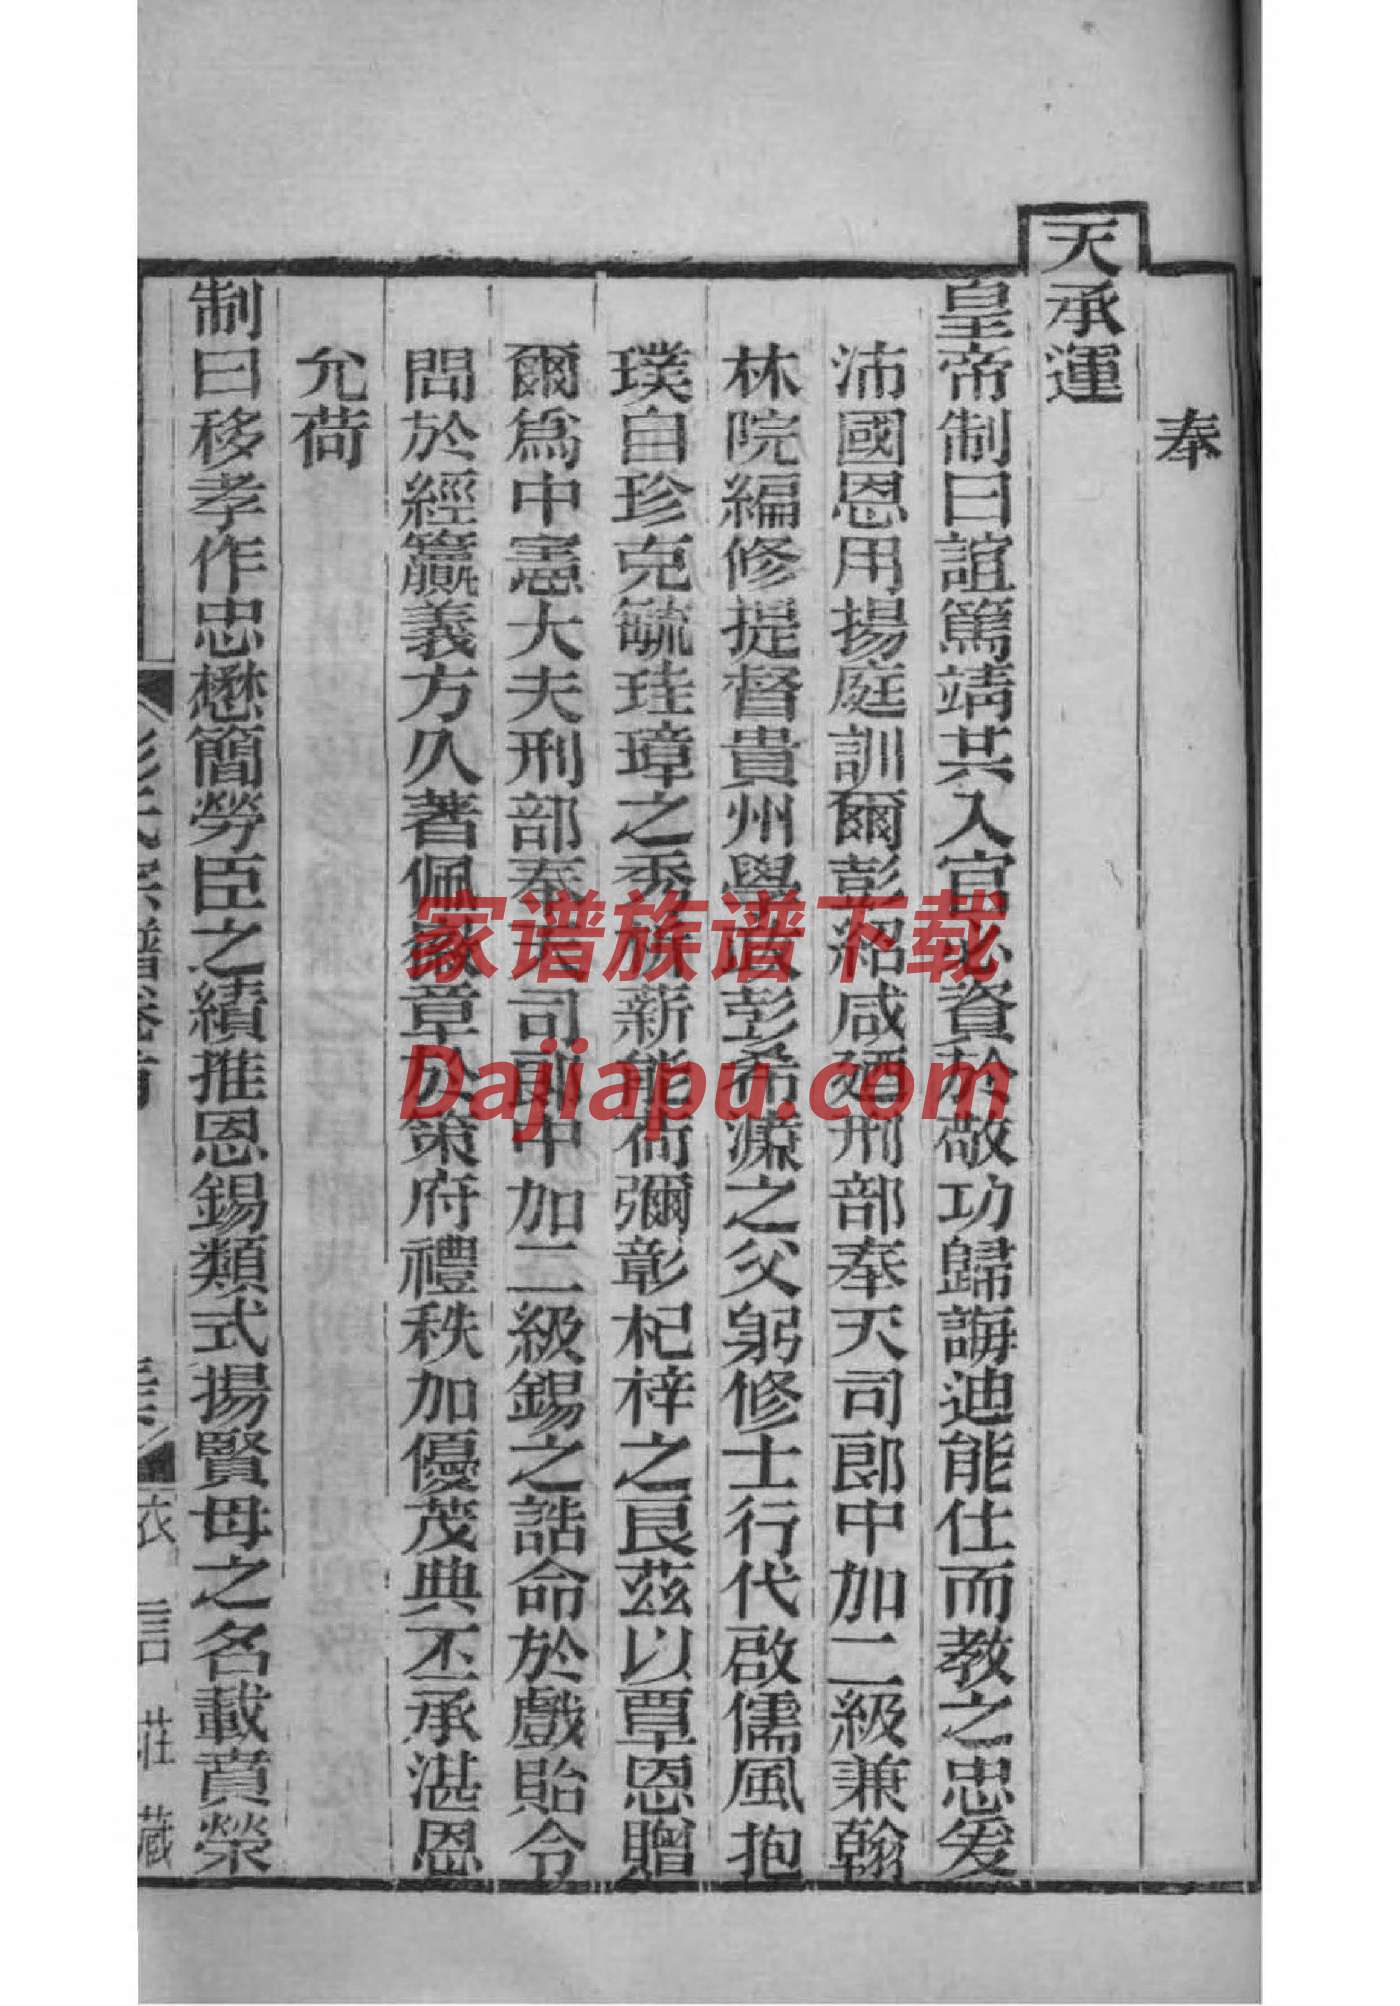 奉
天承運
皇帝制曰誼篤靖共入官必資於敬功歸誨迪能仕而教之忠爰
沛國恩用揚庭訓爾彭紹咸廼刑部奉天司郎中加二級兼翰
林院編修提督貴州學政彭希濂之父躬修士行代啟儒風抱
璞自珍克毓珪璋之秀析薪能荷彌彰杞梓之良茲以覃恩贈
爾爲中憲大夫刑部奉天司郎中加二級錫之誥命於戲貽令
問於經籯義方久著佩徽章於策府禮秩加優茂典丕承湛恩
允荷
制曰移孝作忠懋簡勞臣之績推恩錫類式揚賢母之名載賁榮
彭氏宗譜卷首
衣言莊藏
家谱族谱下载
Dajiapu.com